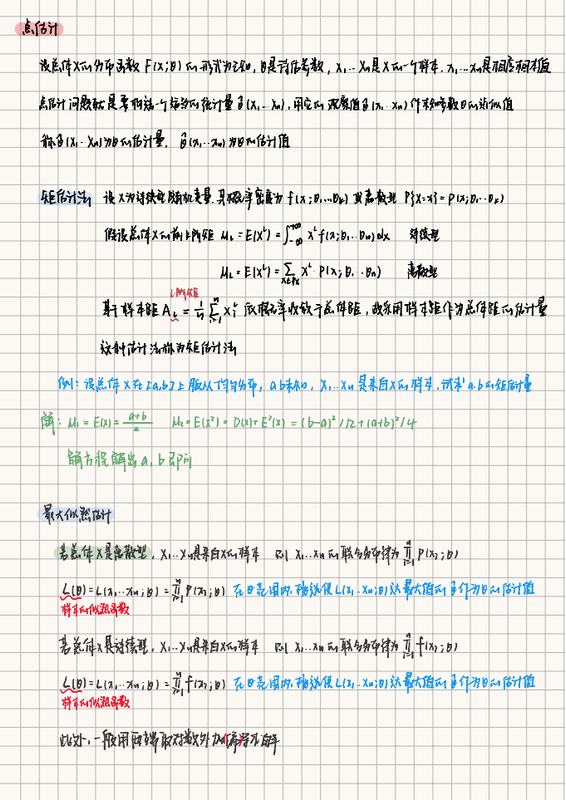 点估计
设总体X的分布函数 F(x;θ) 的形式为已知，θ是待估参数，X₁…Xₙ是X的一个样本，x₁…xₙ是相应样本值
点估计问题就是要构造一个适当的统计量 θ̂(X₁…Xₙ)，用它的观察值 θ̂(x₁…xₙ) 作未知参数θ的近似值
称θ̂(X₁…Xₙ)为θ的估计量，θ̂(x₁…xₙ)为θ的估计值
矩估计法 设X为连续型随机变量，其概率密度为 f(x;θ₁…θₖ) 或离散型 P{X=x}=P(x;θ₁…θₖ)
假设总体X的前k阶矩 μₗ=E(Xˡ)=∫₋∞⁺∞ xˡf(x;θ₁…θₖ)dx 连续型
μₗ=E(Xˡ)=∑ xˡ P(x;θ₁…θₖ) 离散型
L阶矩
基于样本矩 Aₗ = 1/n ∑ᵢ₌₁ⁿ Xᵢˡ 依概率收敛于总体矩，故采用样本矩作为总体矩的估计量
这种估计法称为矩估计法
例：设总体X在[a,b]上服从均匀分布，a,b未知，X₁…Xₙ是来自X的样本，试求a,b的矩估计量
解：μ₁=E(X)=(a+b)/2 μ₂=E(X²)=D(X)+E²(X)=(b-a)²/12+(a+b)²/4
解方程解出a,b即可
最大似然估计
若总体X是离散型，X₁…Xₙ是来自X的样本 则X₁…Xₙ的联合分布律为∏ᵢ₌₁ⁿ P(xᵢ;θ)
L(θ)=L(x₁…xₙ;θ)=∏ᵢ₌₁ⁿ P(xᵢ;θ) 在θ范围内，挑选使L(x₁…xₙ;θ)达最大值的θ̂作为θ的估计值
样本的似然函数
若总体X是连续型，X₁…Xₙ是来自X的样本 则X₁…Xₙ的联合分布律为∏ᵢ₌₁ⁿ f(xᵢ;θ)
L(θ)=L(x₁…xₙ;θ)=∏ᵢ₌₁ⁿ f(xᵢ;θ) 在θ范围内，挑选使L(x₁…xₙ;θ)达最大值的θ̂作为θ的估计值
样本的似然函数
此外，一般用两端取对数外加偏导求解